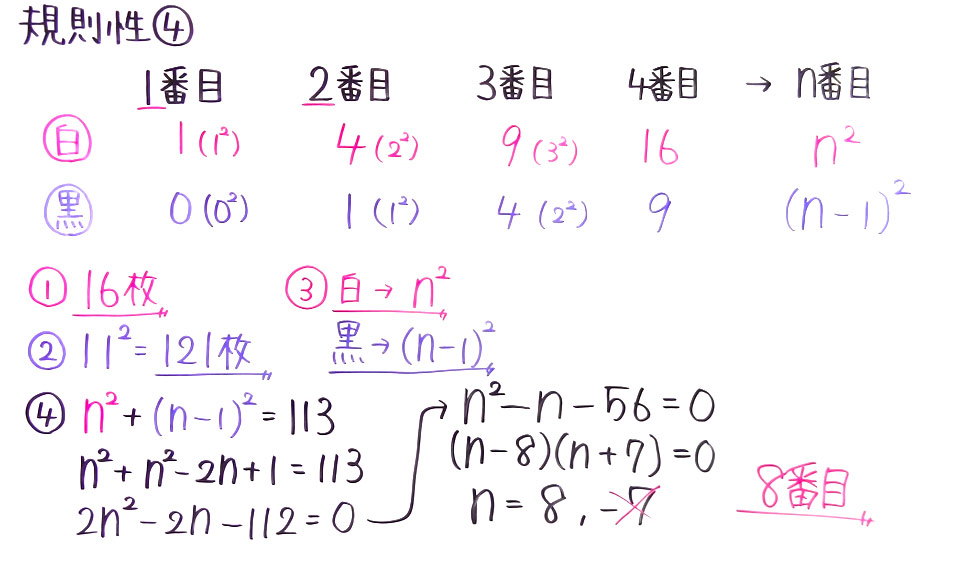 規則性④
1番目 2番目 3番目 4番目 → n番目
白 1(1²) 4(2²) 9(3²) 16 n²
黒 0(0²) 1(1²) 4(2²) 9 (n-1)²
① 16枚 ③ 白→n²
② 11²=121枚 黒→(n-1)²
④ n²+(n-1)²=113
n²+n²-2n+1=113
2n²-2n-112=0
n²-n-56=0
(n-8)(n+7)=0
n=8,-7
8番目